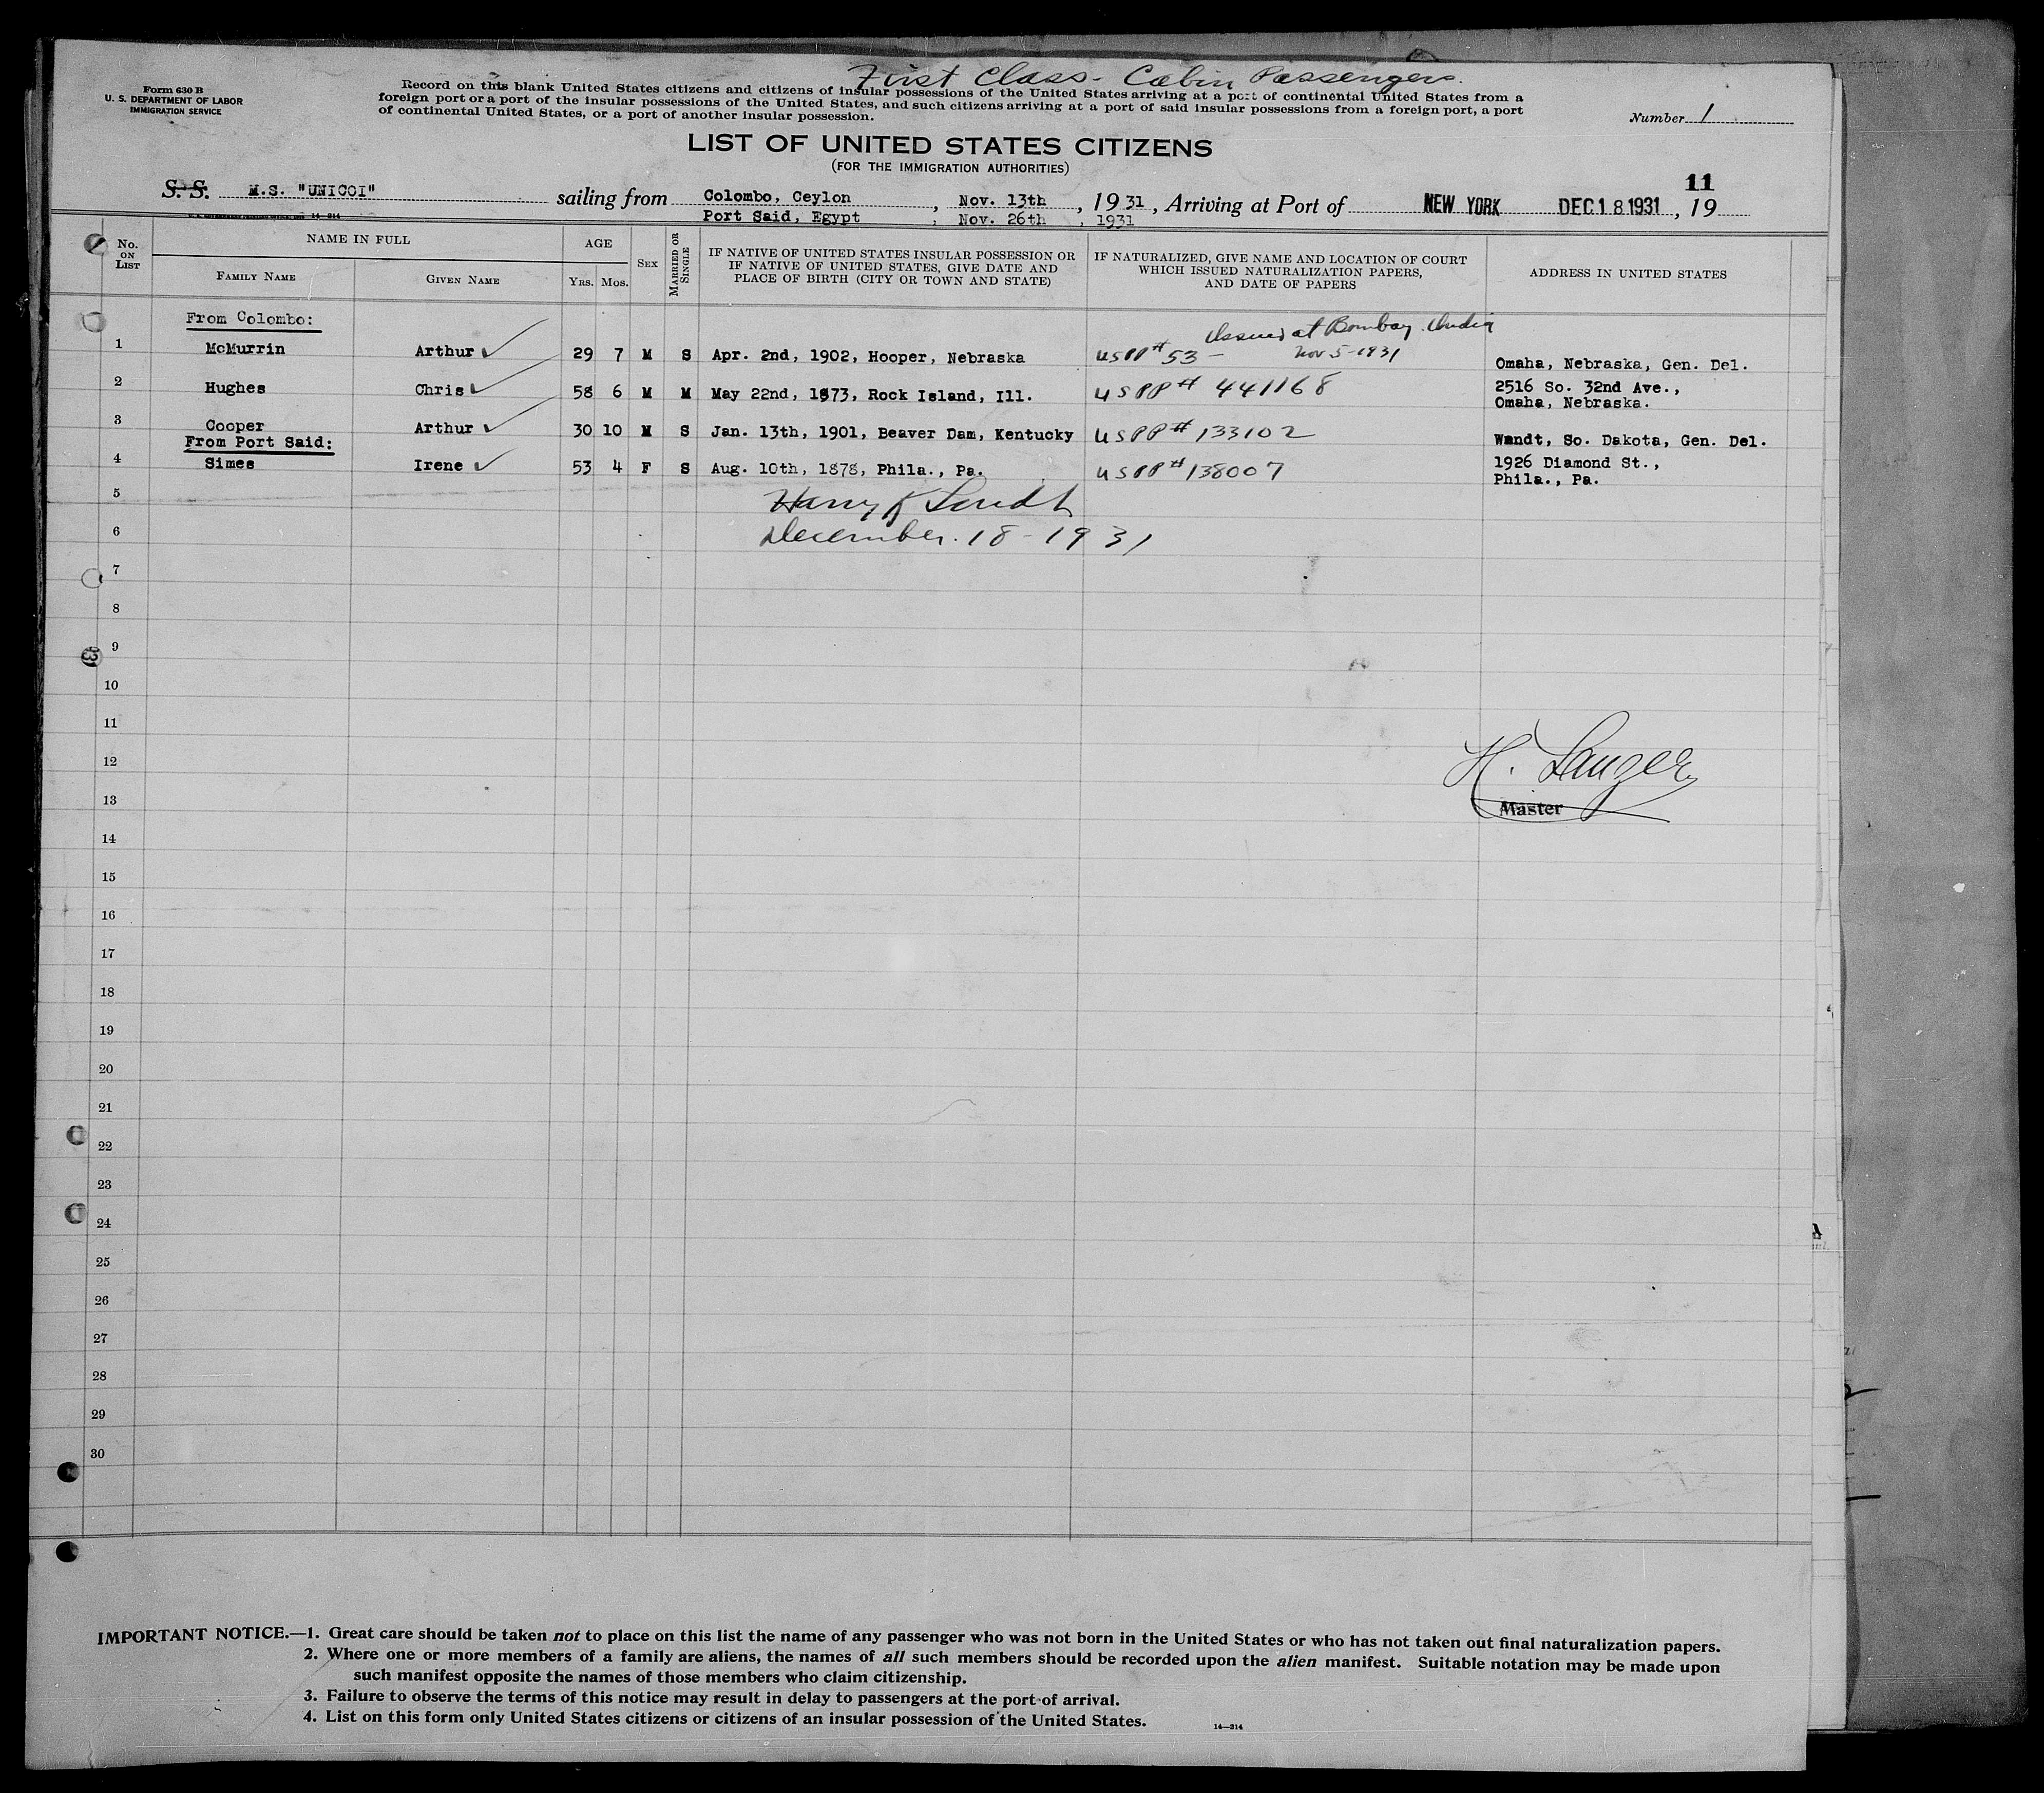 First Class - Cabin Passengers.
Form 630 B
U. S. DEPARTMENT OF LABOR
IMMIGRATION SERVICE
Record on this blank United States citizens and citizens of insular possessions of the United States arriving at a port of continental United States from a
foreign port or a port of the insular possessions of the United States, and such citizens arriving at a port of said insular possessions from a foreign port, a port
of continental United States, or a port of another insular possession.
Number 1
LIST OF UNITED STATES CITIZENS
(FOR THE IMMIGRATION AUTHORITIES)
11
S. S. M.S. "UNICOI" sailing from Colombo, Ceylon, Nov. 13th, 1931, Arriving at Port of NEW YORK DEC 18 1931, 19
Port Said, Egypt, Nov. 26th, 1931
No. ON LIST
NAME IN FULL
FAMILY NAME
GIVEN NAME
AGE
YRS. MOS.
SEX
MARRIED OR SINGLE
IF NATIVE OF UNITED STATES INSULAR POSSESSION OR
IF NATIVE OF UNITED STATES, GIVE DATE AND
PLACE OF BIRTH (CITY OR TOWN AND STATE)
IF NATURALIZED, GIVE NAME AND LOCATION OF COURT
WHICH ISSUED NATURALIZATION PAPERS,
AND DATE OF PAPERS
ADDRESS IN UNITED STATES
From Colombo:
Issued at Bombay. India
1 McMurrin Arthur 29 7 M S Apr. 2nd, 1902, Hooper, Nebraska USPP# 53 - Nov 5-1931 Omaha, Nebraska, Gen. Del.
2 Hughes Chris 58 6 M M May 22nd, 1873, Rock Island, Ill. USPP# 441168 2516 So. 32nd Ave.,
Omaha, Nebraska.
3 Cooper Arthur 30 10 M S Jan. 13th, 1901, Beaver Dam, Kentucky USPP# 133102 Wandt, So. Dakota, Gen. Del.
From Port Said:
4 Simes Irene 53 4 F S Aug. 10th, 1878, Phila., Pa. USPP# 138007 1926 Diamond St.,
Phila., Pa.
5 Harry K
6 December. 18-1931
7
8
9
10
11
12 H. Langer
13 Master
14
15
16
17
18
19
20
21
22
23
24
25
26
27
28
29
30
IMPORTANT NOTICE.—1. Great care should be taken not to place on this list the name of any passenger who was not born in the United States or who has not taken out final naturalization papers.
2. Where one or more members of a family are aliens, the names of all such members should be recorded upon the alien manifest. Suitable notation may be made upon
such manifest opposite the names of those members who claim citizenship.
3. Failure to observe the terms of this notice may result in delay to passengers at the port of arrival.
4. List on this form only United States citizens or citizens of an insular possession of the United States.
14—214